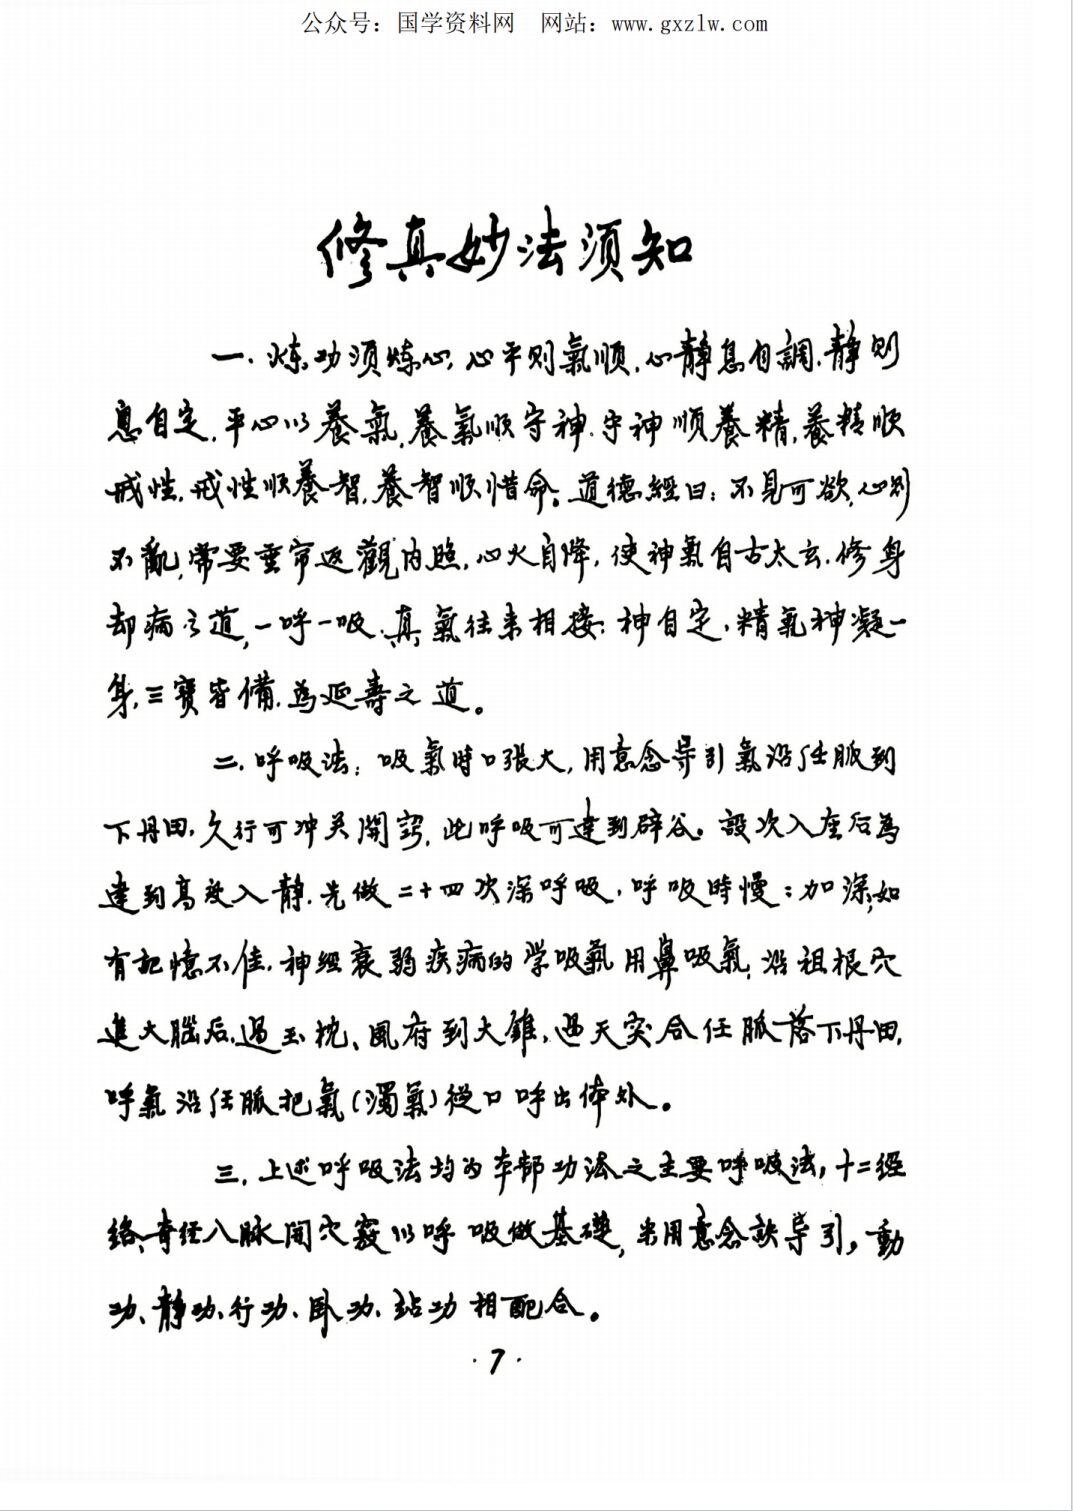 公众号：国学资料网　网站：www.gxzlw.com
修真妙法须知
一.炼功须炼心,心平则氣順,心静息自調.静则
息自定.平心以養氣,養氣順守神.守神順養精,養精順
戒性.戒性順養智,養智順惜命。道德經曰：不見可欲,心别
不亂,常要垂帘返觀内照,心火自降,使神氣自古太玄.修身
却病之道,一呼一吸.真氣往来相接；神自定,精氣神凝一
身,三寶皆備.為延壽之道。
二.呼吸法：吸氣時口張大,用意念导引氣沿任脈到
下丹田,久行可冲关開窍,此呼吸可達到辟谷。設次入座后為
達到高效入静.先做二十四次深呼吸,呼吸時慢；加深;如
有記憶不佳.神經衰弱疾病的学吸氣用鼻吸氣,沿祖根穴
進大腦后,過玉枕、風府到大錐,過天突合任脈落下丹田,
呼氣沿任脈把氣(濁氣)從口呼出体外。
三.上述呼吸法均为本部功法之主要呼吸法,十二經
络、奇经八脉開穴竅以呼吸做基礎,来用意念訣导引,動
功、静功、行功、卧功、站功相配合。
·7·